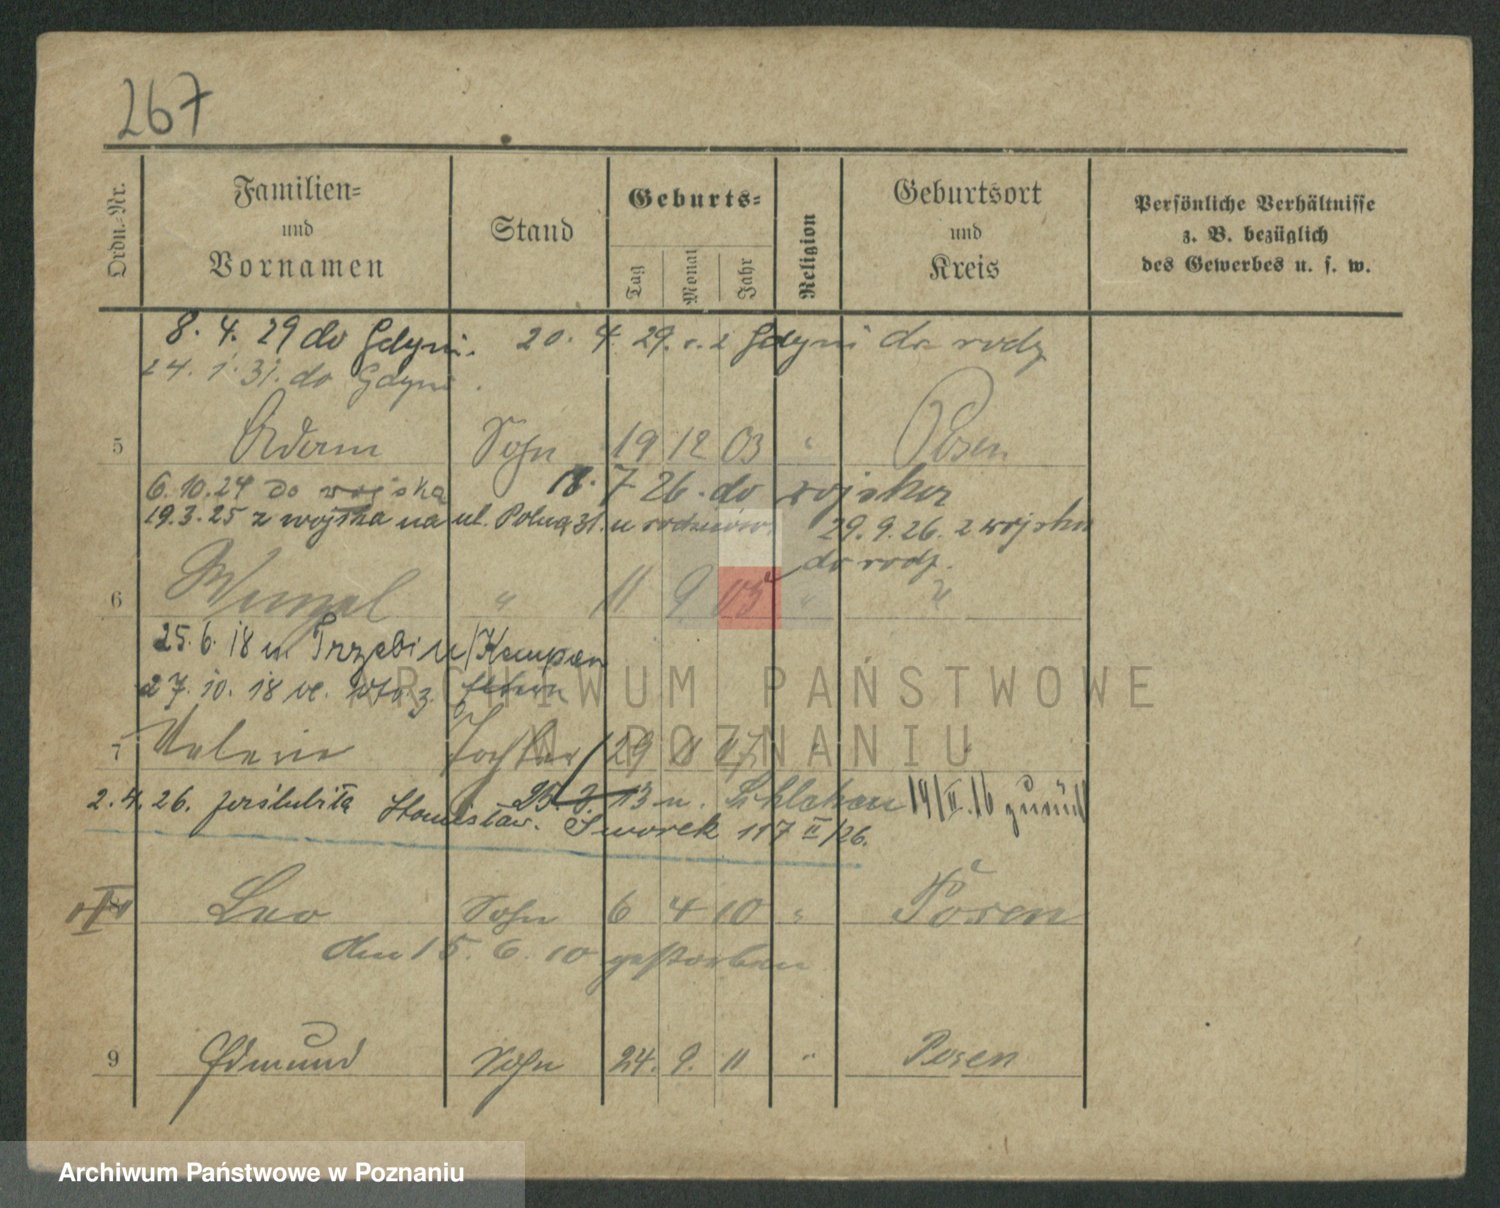 267
Ordn.-Nr.
Familien-
und
Vornamen
Stand
Geburts-
Tag
Monat
Jahr
Religion
Geburtsort
und
Kreis
Persönliche Verhältnisse
z. B. bezüglich
des Gewerbes u. s. w.
8. 4. 29 do Gdyni. 20. 4. 29. z Gdyni do rodz
24. 1. 31. do Gdyni.
5 Adam Sohn 19 12 03 " Posen
6.10.24 do wojska 18. 7 26. do wojska
19.3.25 z wojska na ul. Polną 31. u rodziców. 29. 9. 26. z wojska
do rodz.
6 Wenzel " 11 9 05 " "
25. 6. 18 n. Trzebin/Kempen
27. 10. 18
7 Tochter 29
2. 4. 26. poślubiła Stanisław. Tworek 117 II/26.
25. 3. 13 n. 19/II.16 zurück
Leo Sohn 6 4 10 " Posen
den 15. 6. 10 gestorben
9 Edmund Sohn 24. 9. 11 " Posen
ARCHIWUM PAŃSTWOWE
W POZNANIU
Archiwum Państwowe w Poznaniu